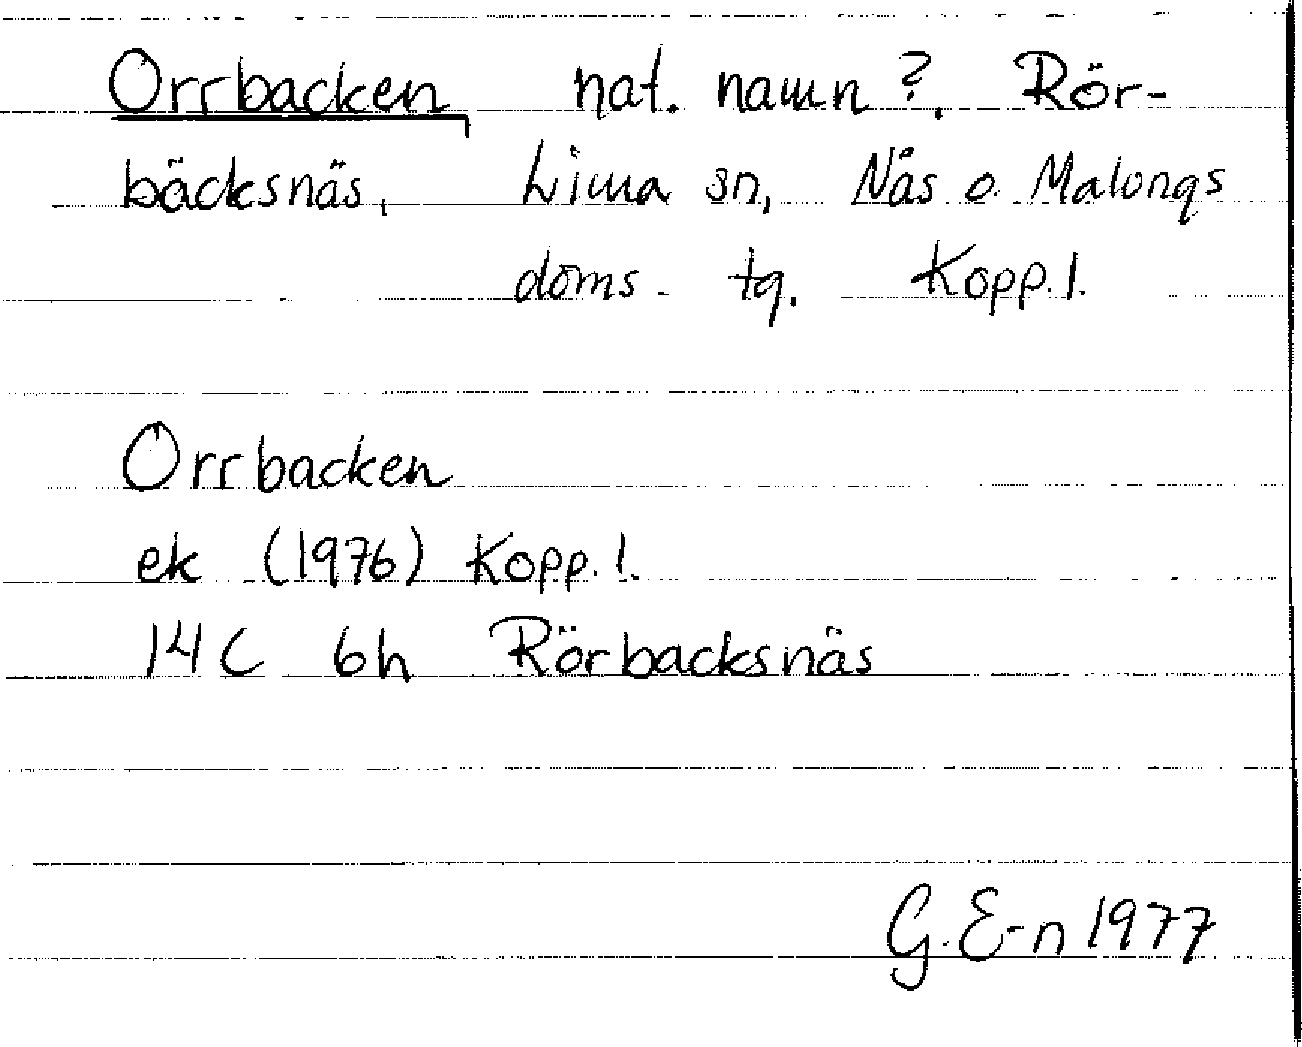 Orrbacken, nat. namn?. Rör-
bäcksnäs, Lima sn, Nås o. Malungs
doms. tg. Kopp.l.
Orrbacken
ek (1976) Kopp.l.
14C 6h Rörbacksnäs
G.E-n 1977